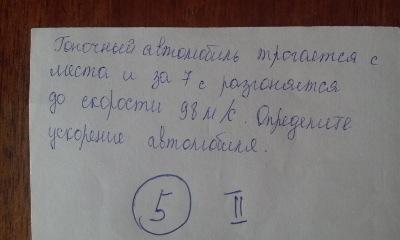 Гоночный автомобиль трогается с
места и за 7 с разгоняется
до скорости 98 м/с. Определите
ускорение автомобиля.
5 II